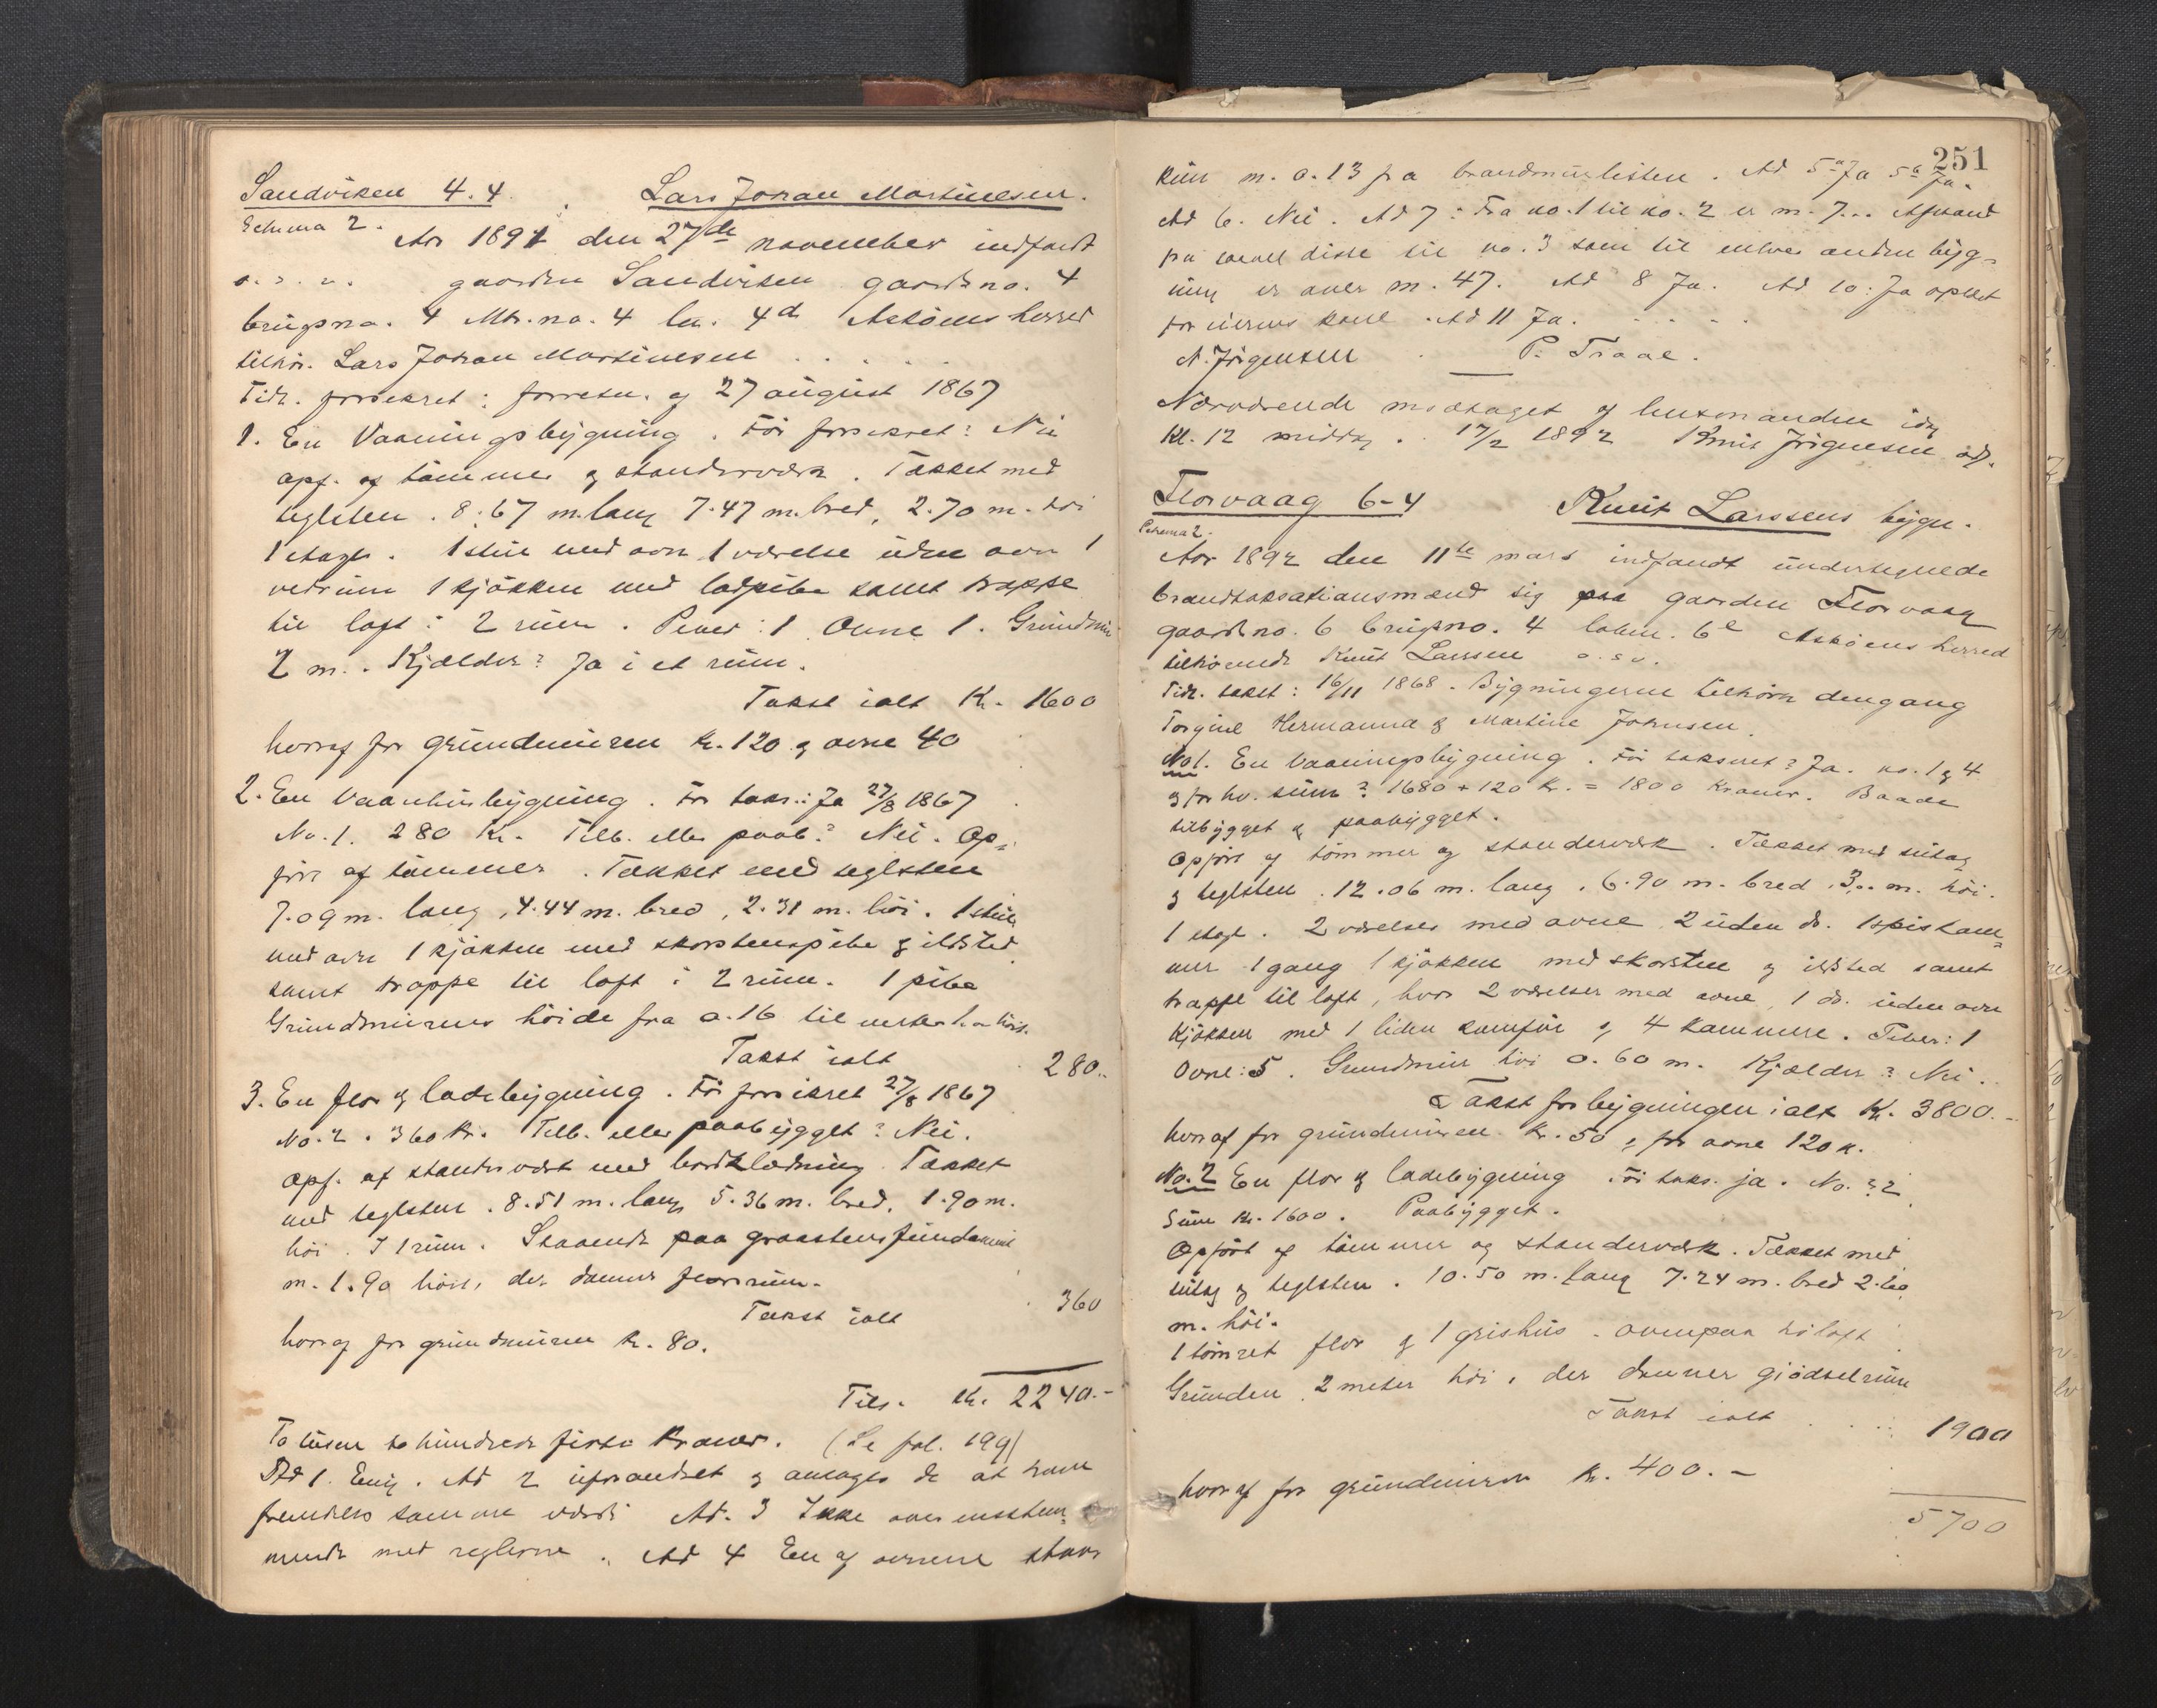 Sandviken 4.4. Lars Johan Martinesen.
Schema 2. Aar 1891 den 27de november indfandt
o. s. v. gaarden Sandviken gaardsno. 4
brugsno. 4 Mtr. no. 4 lu. 4d Askøens herred
tilhør. Lars Johan Martinesen . . . . .
Tidl. forsikret: forretn. af 27 august 1867
1. En Vaaningsbygning. Før forsikret? Nei
opf. af tømmer og standerværk. Tækket med
teglsten. 8.67 m. lang 7.47 m. bred, 2.70 m. høi
1 etage. 1 stue med ovn 1 værelse uden ovn 1
vedrum 1 kjøkken med ladpibe samt trappe
til loft i 2 rum. Piber: 1 Ovne 1. Grundmur
2 m. Kjælder? Ja i et rum.
Takst ialt Kr. 1600
hvoraf for grundmuren kr. 120 og ovne 40
2. En Vaanhusbygning. Før taks.: Ja 27/8 1867
No. 1. 280 Kr. Tilb. eller paab.? Nei. Op-
ført af tømmer. Tækket med teglsten
7.09 m. lang, 4.44 m. bred, 2.31 m. høi. 1 stue
med ovn 1 kjøkken med skorstenspibe & ildsted
samt trappe til loft i 2 rum. 1 pibe
Grundmurens høide fra 0.16 til
Takst ialt 280..
3. En flor & ladebygning. Før forsikret 27/8 1867
No. 2. 360 Kr. Tilb. eller paabygget? Nei.
Opf. af standerværk med bordklædning. Tækket
med teglsten. 8.51 m. lang 5.36 m. bred, 1.90 m.
høi. I 1 rum. Staaende paa graastensfundament
m. 1.90 høit, der danner florrum.
Takst ialt 360
hvoraf for grundmuren kr. 80.
Tils. Kr. 2240.-
To tusen to hundrede firti Kroner. (Se fol. 199)
Ad 1. Enig. Ad 2 uforandret og antages de at have
fremdeles samme værdi Ad. 3 Ikke overensstem-
mende med reglerne. Ad 4 En af ovnene staar
251
kun m. 0.13 fra brandmurlisten. Ad 5a Ja 5b Ja.
Ad 6. Nei. Ad 7: Fra no. 1 til no. 2 er m. 7... Afstand
fra saavel disse til no. 3 som til enhver anden byg-
ning er over m. 47. Ad 8 Ja. Ad 10: Ja oplæst
for eierens kone. Ad 11 Ja. . . . .
N. Jørgensen P. Traae.
Nærværende modtaget af lensmanden idag
Kl. 12 middag. 17/2 1892 Knut Jørgensen
Florvaag 6-4 Knut Larssens bygn.
Schema 2.
Aar 1892 den 11te mars indfandt undertegnede
brandtaksationsmænd sig paa gaarden Florvaag
gaardsno. 6 brugsno. 4 løben. 6e Askøens herred
tilhørende Knut Larssen o. s. v.
Tidl. takst: 16/11 1868. Bygningerne tilhørte dengang
Torgine Hermanna & Martine Johnsen.
No 1. En Vaaningsbygning. Før takseret? Ja. no. 1 og 4
og for hv. sum? 1680 + 120 Kr. = 1800 Kroner. Baade
tilbygget & paabygget.
Opført af tømmer og standerværk. Tækket med sutag
og teglsten. 12.06 m. lang. 6.90 m. bred. 3.. m. høi.
1 etage. 2 værelser med ovne, 2 uden do. 1 spiskam-
mer 1 gang 1 kjøkken med skorsten og ildsted samt
trappe til loft, hvor 2 værelser med ovne, 1 do. uden ovn
kjøkken med 1 liden komfur og 4 kammere. Piber: 1
Ovne: 5. Grundmur høi 0.60 m. Kjælder? Nei.
Takst for bygningen ialt Kr. 3800.-
hvoraf for grundmuren kr. 50, for ovne 120 kr.
No. 2 En flor & ladebygning. Før taks. ja. No.? 2
Sum Kr. 1600. Paabygget.
Opført af tømmer og standerværk. Tækket med
sutag og teglsten. 10.50 m. lang 7.24 m. bred 2.60
m. høi.
1 tømret flor & 1 grishus. ovenpaa høloft
Grunden 2 meter høi, der danner gjødselrum
Takst ialt . . . . 1900
hvoraf for grundmuren kr. 400.-
5700